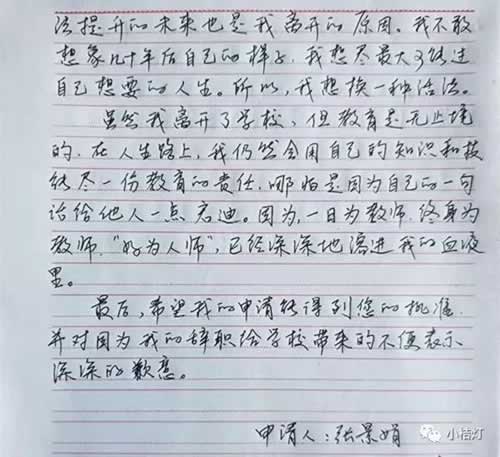 法提升的未来也是我离开的原因。我不敢
想象几十年后自己的样子，我想尽最大可能过
自己想要的人生。所以，我想换一种活法。
虽然我离开了学校，但教育是无止境
的，在人生路上，我仍然会用自己的知识和技
能尽一份教育的责任，哪怕是因为自己的一句
话给他人一点启迪。因为，一日为教师，终身为
教师，“好为人师”，已经深深地溶进我的血液
里。
最后，希望我的申请能得到您的批准，
并对因为我的辞职给学校带来的不便表示
深深的歉意。
申请人：张景娟
小桔灯